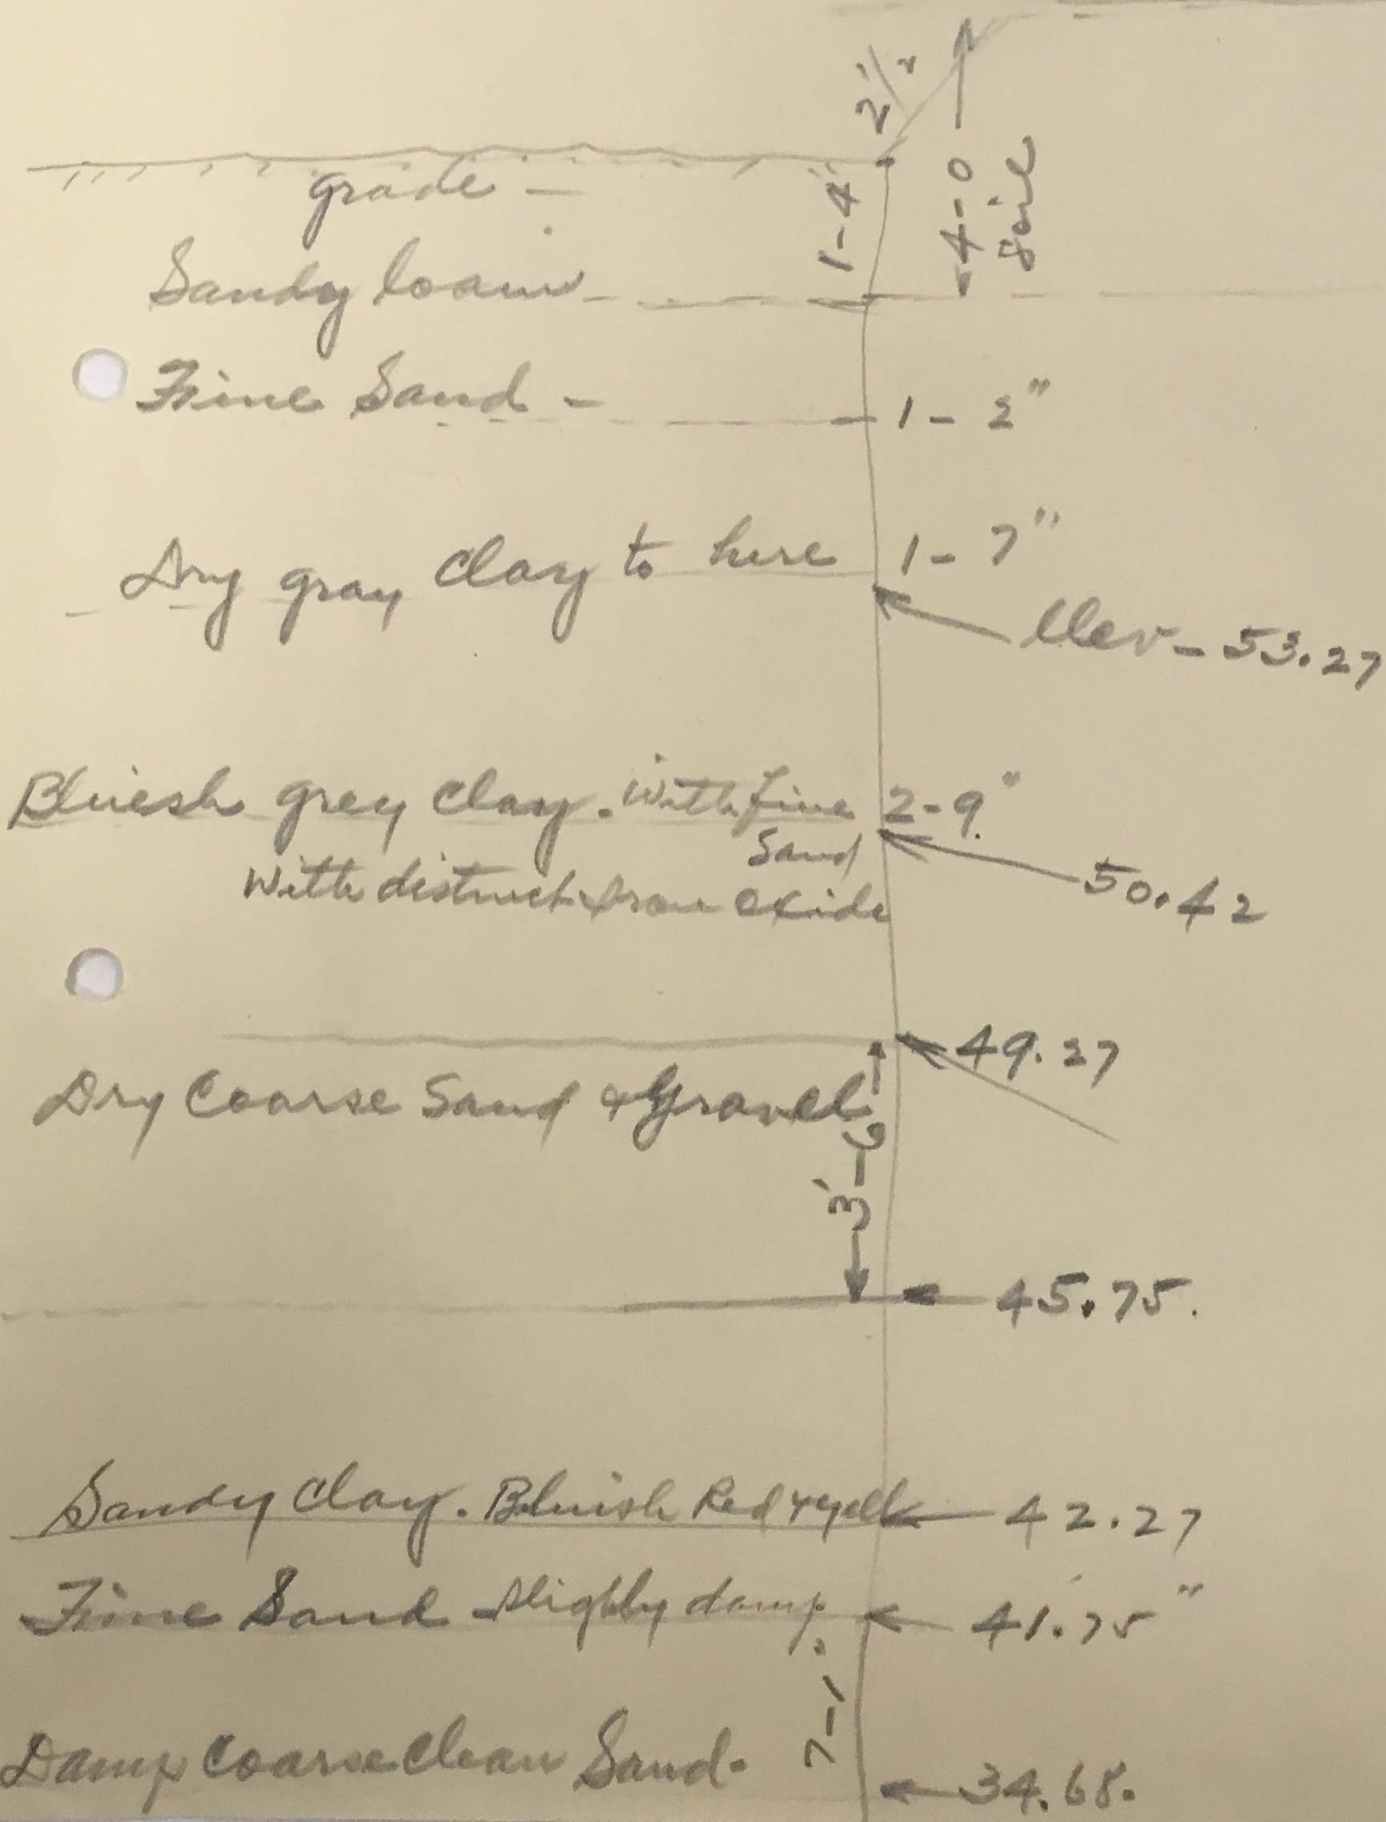 2 1/2
grade - 1-4" 4-0 Soil
Sandy loam -
Fine Sand - 1 - 2"
Dry gray clay to here 1 - 7"
Elev - 53.27
Bluesh grey clay. With fine 2-9"
Sand
With distinct iron oxide 50.42
49.27
Dry Coarse Sand & Gravel
3'-6
45.75.
Sandy Clay. Bluish Red & yell 42.27
Fine Sand - slighly damp. 41.75"
7-1
Damp Coarse Clean Sand. 34.68.